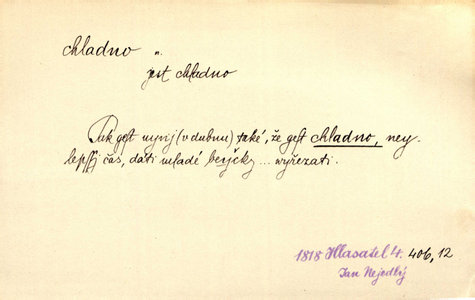 chladno n.
jest chladno
Pak gest nynj (v dubnu) také, že gest chladno, ney-
lepssj čas, dáti mladé berjčky ... wyřezati.
1818 Hlasatel 4. 406, 12
Jan Nejedlý